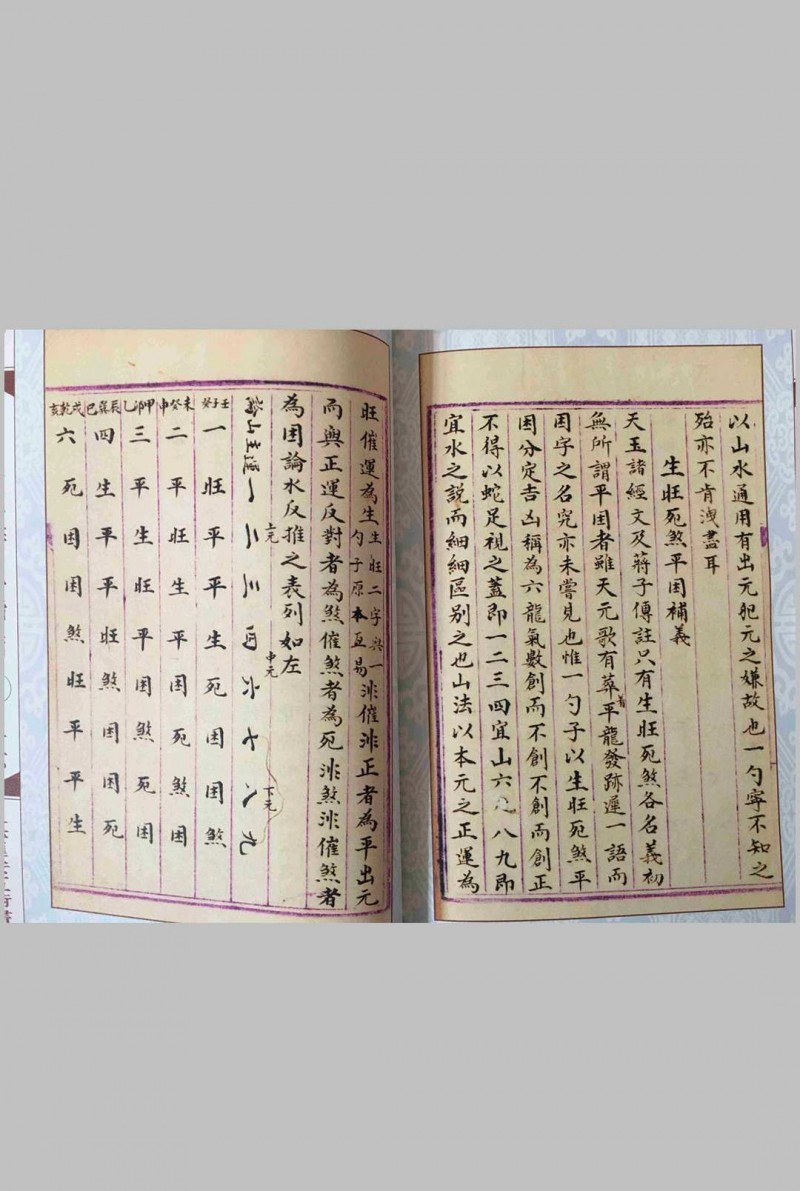 以山水通用有出元犯元之嫌故也一勺寧不知之
殆亦不肯洩盡耳
生旺死煞平困補義
天玉諸經文及蔣子傳註只有生旺死煞各名義初
無所謂平困者雖天元歌有葬著平龍發跡遲一語而
困字之名究亦未嘗見也惟一勺子以生旺死煞平
困分定吉凶稱為六龍氣數創而不創不創而創正
不得以蛇足視之蓋即一二三四宜山六七八九即
宜水之説而細細區別之也山法以本元之正運為
旺催運為生生旺二字與一勺子原本互易非催非正者為平出元
而與正運反對者為煞催煞者為死非煞非催煞者
為困論水反推之表列如左
上元
中元
下元
壬子癸 一 旺 平 平 生 死 困 困 煞
未坤申 二 平 旺 生 平 困 死 煞 困
甲卯乙 三 平 生 旺 平 困 煞 死 困
辰巽巳 四 生 平 平 旺 煞 困 困 死
戌乾亥 六 死 困 困 煞 旺 平 平 生